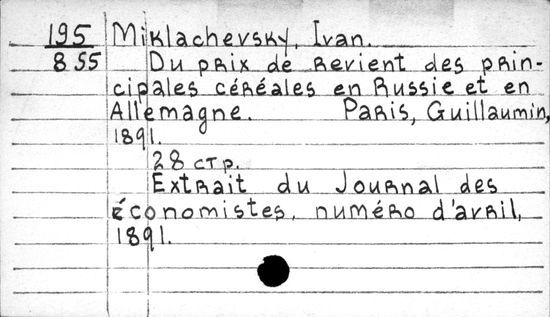 195 Miklachevsky, Ivan.
855 Du prix de revient des prin-
cipales céréales en Russie et en
Allemagne. Paris, Guillaumin,
1891.
28 стр.
Extrait du Journal des
économistes, numéro d'avril,
1891.